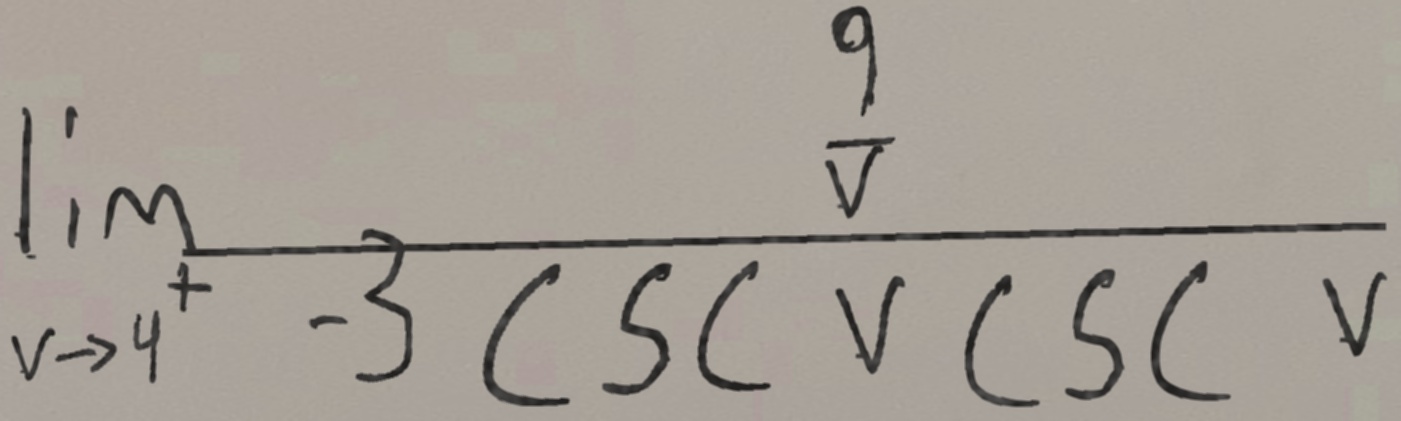 \lim_{v \to 4^+} \frac{\frac{9}{v}}{-3 \csc v \csc v}